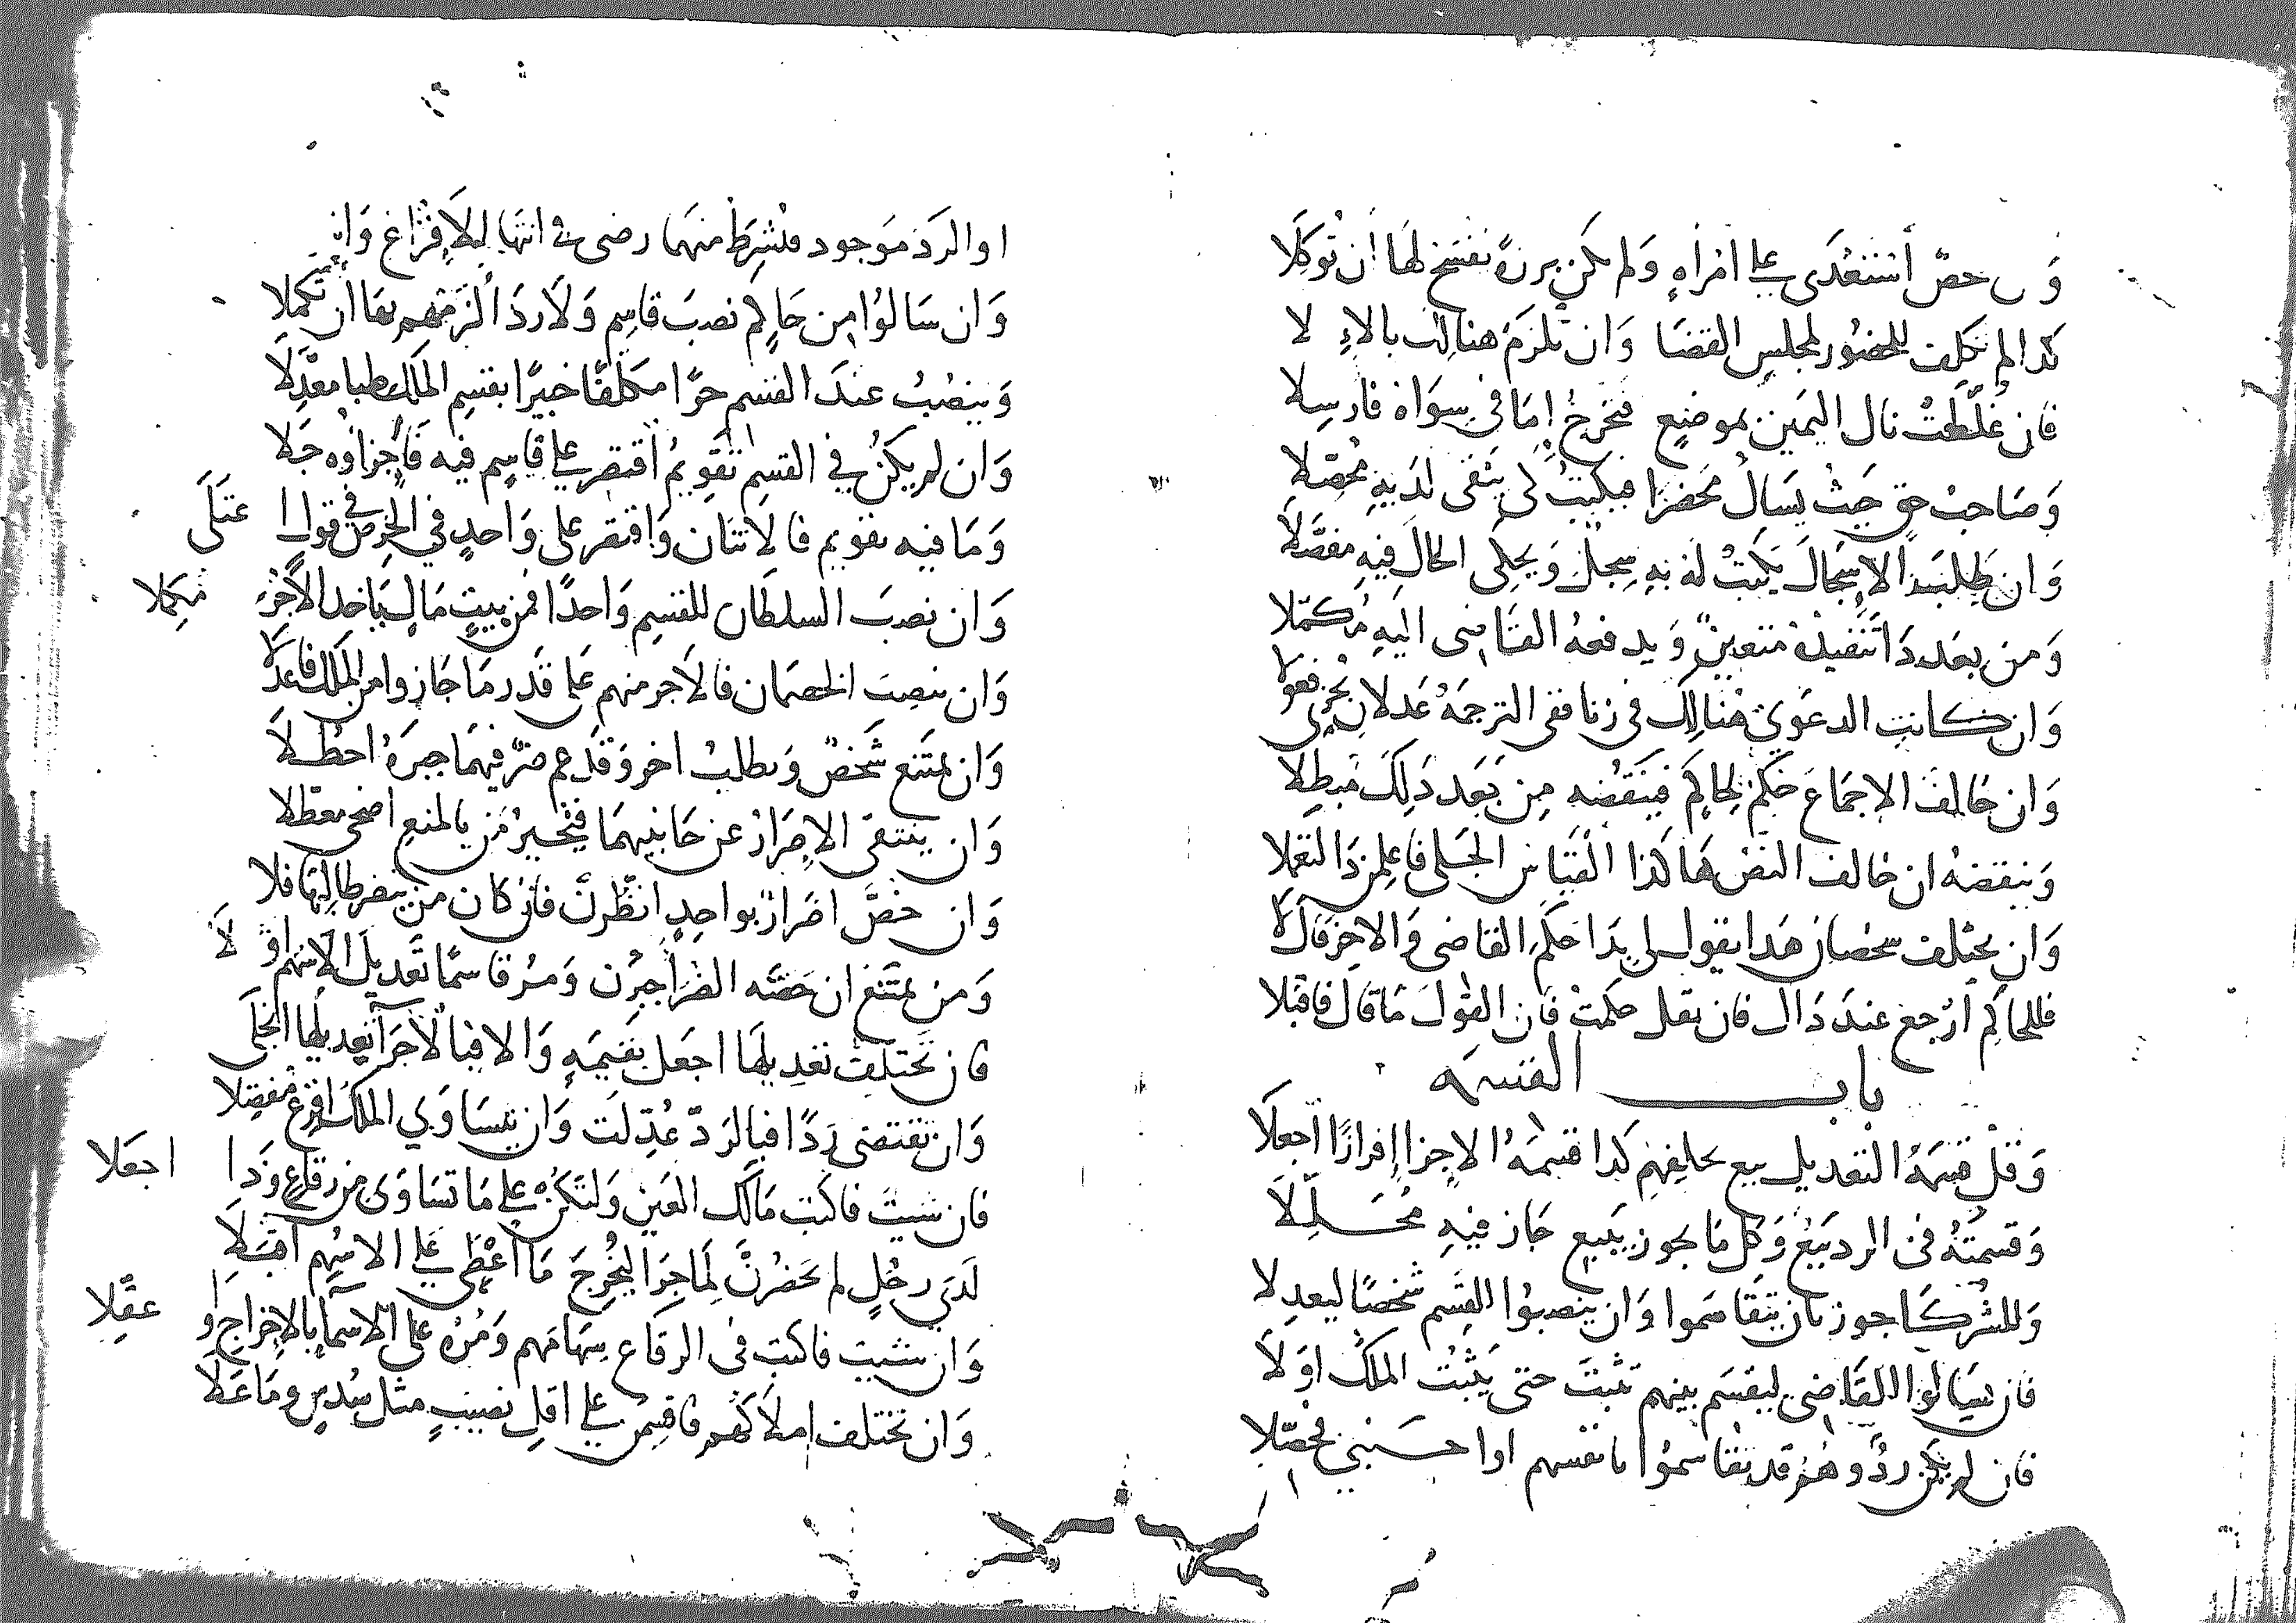 استعدى على امرأه ولم تكن برزة نفسح لها أن توكلا
كذا لم تكلف للحضور لمجلس القضا وان تلزم هنالك بالا لا
فان غلظت تال اليمين بموضع فتخرج إما في سواه فارسلا
وصاحب حق حيث يسال محضرا فيكتب كي يثقى لديه محصلا
وان طلبت الاسجال يكتب له به سجل ويحكى الحال فيه مفصلا
ومن بعد دا تنفيذه متعين ويدفعه القاضى اليه مكملا
وان كانت الدعوي هنالك في زنا ففى الترجمة عدلان
وان خالف الاجماع حكم لحاكم فينقضه من بعد ذلك مبطلا
وينقضه ان خالف النص هاكذا القياس الجلى فاعلمن ذا لتعملا
وان يختلف سخصان هدا يقول لي بدا حكم القاضى والاخر قال لا
فللحاكم ارجع عند دا فان يقل حكمت فان القول ما قال فاقبلا
باب القسمه
وقل قسمة التعديل بيع كدا قسمة الاجزا إفرازا اجعلا
وقسمته في الرد بيع وكل ما يجوز ببيع جاز فيه محللا
وللشركا جوز بان يتقاسموا وان ينصبوا للقسم شخصا ليعدلا
فان يسالوا القاضى ليقسم بينهم تثبت حتى يثبت الملك اولا
فان لم يكن رد وهم قد تقاسموا بانفسهم
او الرد موجود فشرط منهما رضى في انتها للافراغ وان
وان سالوا من حاكم نصب قاسم ولا رد الزمهم بها ان تكملا
وينصب عند القسم حرا مكلفا خبيرا بقسم الملك طبا معدلا
وان لم يكن في القسم تقويم اقتصر على قاسم فيه فاجزاوه جلا
وما فيه تقويم فالاثنان واقتصر على واحد في الخرص في قول اعتلى
وان نصب السلطان للقسم واحدا فمن بيت مال ياخد الاجر مكملا
وان ينصب الخصمان فالاجر منهم على قدر ما جازوا من الملك فاعدلا
وان يمتنع شخص ويطلب اخر وقد عم ضر فيهما جبره احظلا
وان ينتقى الاضرار عن جانبيهما فتجبير من بالمنع اضحى معطلا
وان خص اضرار بواحد انظرن فان كان من يضر طالبها فلا
ومن يمتنع ان خصه الضر اجبرن ومر قاسما تعديل الاسهم اولا
فان تختلف تعديلها اجعل بقيمة والا فبالاجزا تعديلها انجلى
وان تقتضى ردا فبالرد عدلت وان يتساوي الملك اقرع مفصلا
فان شيت فاكتب مالك العين ولتكن على ما تساوى من رقاع وذا اجعلا
لدي رجل لم يحضرن لما جرا ليخرج ما اعطى على الاسهم اقبلا
وان شيت فاكتب في الرقاع سهامهم ومره على الاسما بالاخراج واعقلا
وان تختلف املاكهم فاقسمن على اقل نصيب مثل سدس وما علا